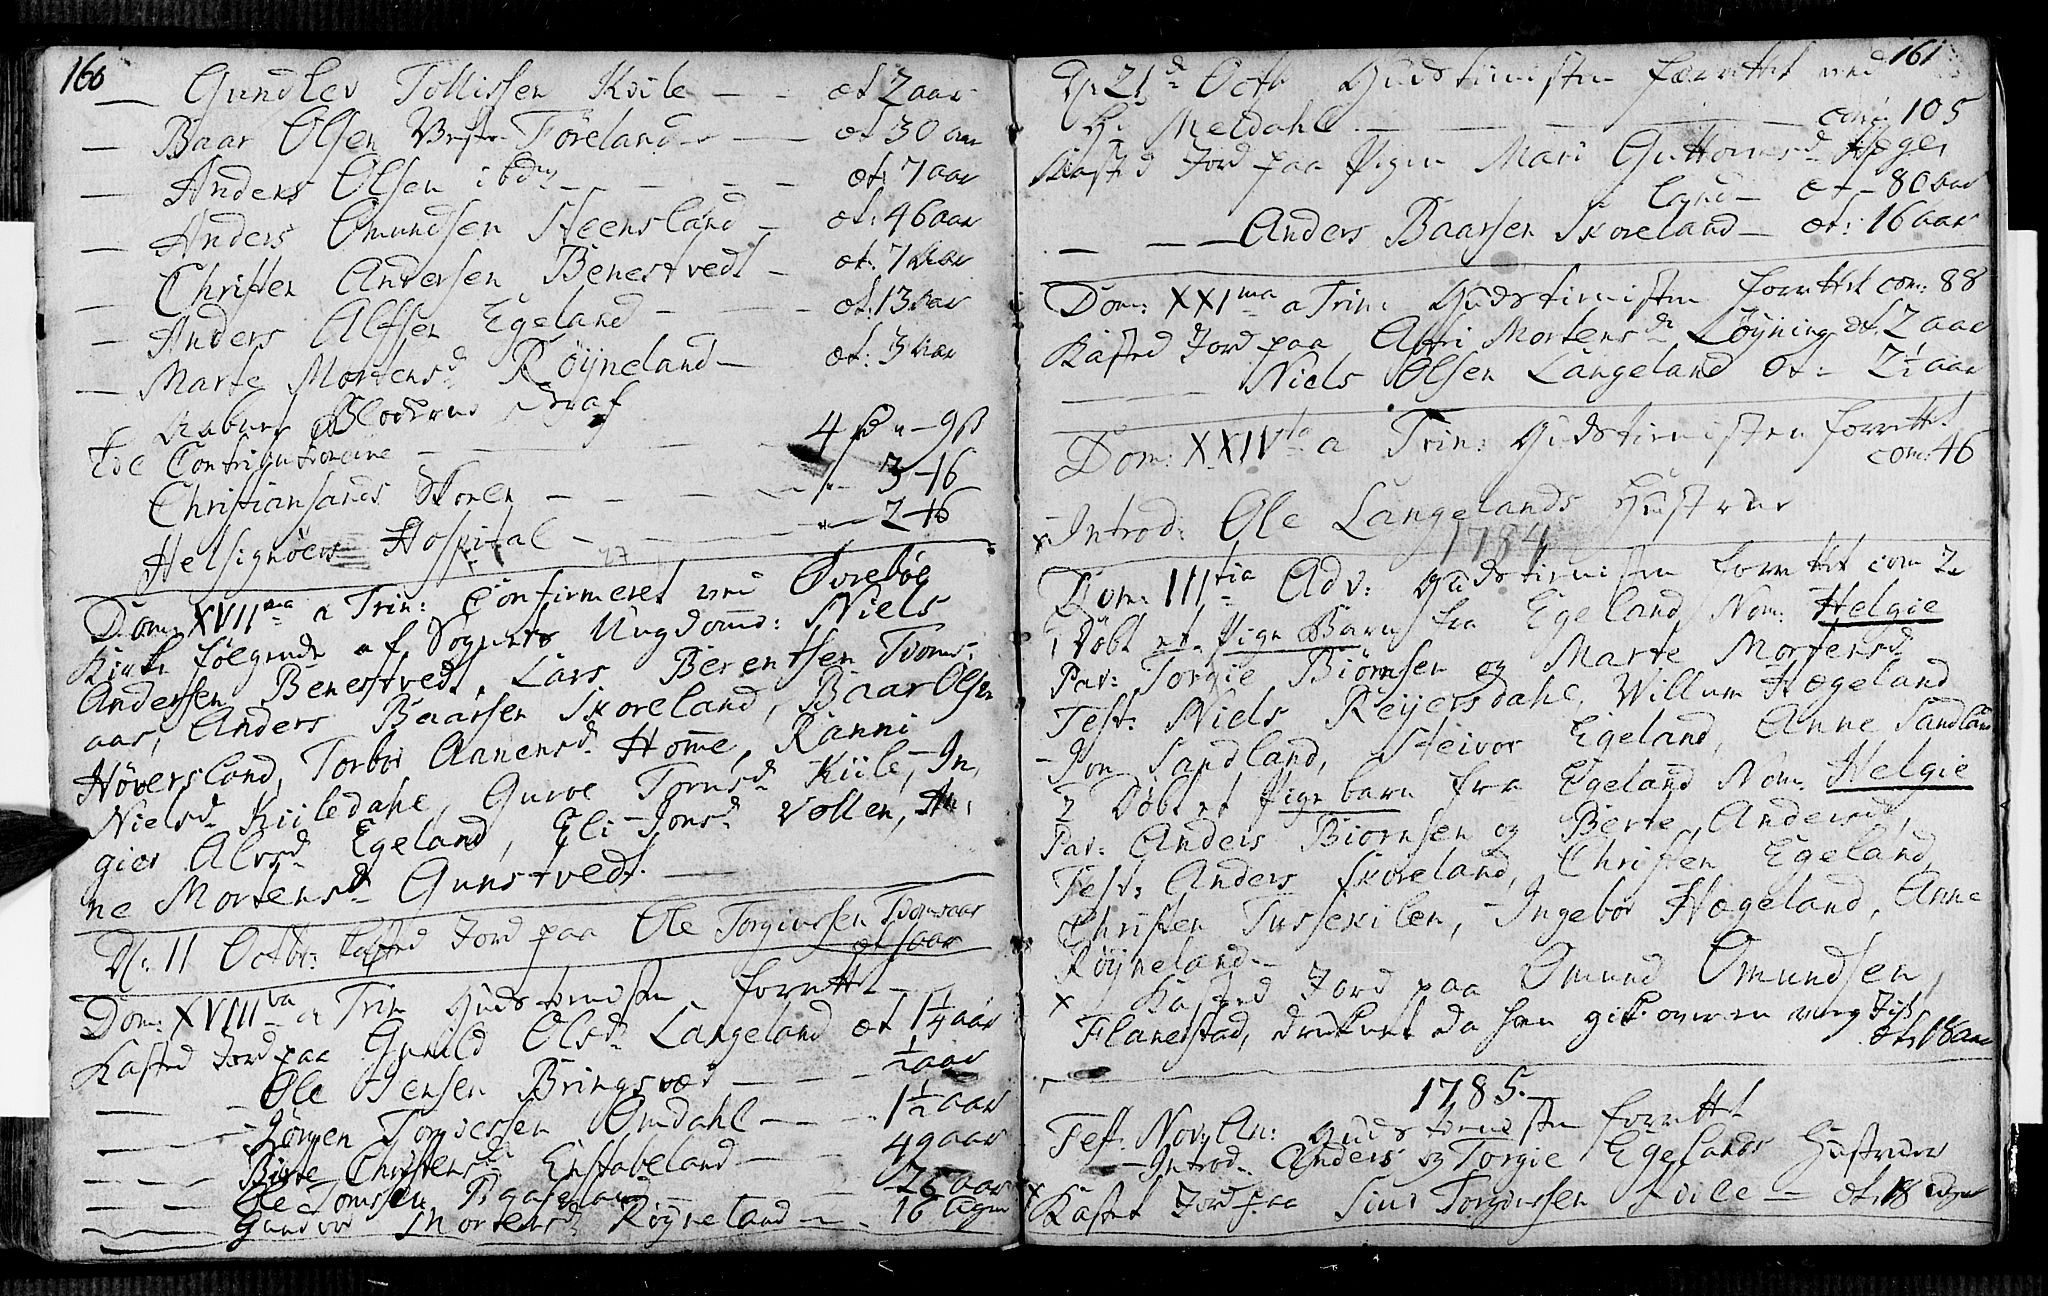 160
— Gundlev Tollissen Kiile — — æt 2 aar
— Baar Olsen Vestr Föreland — — æt 30 aar
— Anders Olsen ibdm — — — — æt: 7 aar
— Anders Omundsen Steensland — æt: 46 aar
— Christen Andersen Benestvedt — æt: 7 aar
— Anders Alfsen Egeland — — — æt: 13 aar
— Marte Mortensd. Röÿneland — æt: 3 aar
graf
Til Contributionene — — — 4 — 9 ß
Christiansands — — — 3 – 16
Helsignöers Hospital — — — 2 – 16
Dom: XVIIma a Trin: Confirmeret ved Övreböe
Kirke fölgende af Sognets Ungdomme: Niels
Andersen Benestvedt, Lars Berentsen Tvoms-
aas, Anders Baarsen Skoreland, Baar Olsen
Höversland, Torbor Aanensd. Homme, Ranni
Nielsd. Kiiledahl, Guroe Tornsd. Kiile, In,
gier Alvsd. Egeland, Eli Jonsd. Vollen, An:
ne Mortensd. Gunstvedt. —
D: 11 Octbr: Kasted Jord paa Ole Torgiussen Tvomsaas
aar
Dom: XVIIIva a Trin Gudstienesten forrettet
Kasted Jord paa Gunild Olsd. Langeland æt 1¼ aar
— — Ole Jensen Bringsvæd — — — ½ aar
— — Jörgen Torgiersen Omdahl — — 1½ aar
— — Birte Christensd. Enstabeland — — 49 aar
— — Ole Tomssen — — 26 aar
— — Gunvor Mortensd. Röyneland — — 16 Uger
161
D: 21d Octb Gudstienisten forrettet ved
Hr. Meldahl — — — — — com: 105
Kasted Jord paa Pigen Mari Guttormsd. Hæge,
land — æt – 80 aar
— — — Anders Baarsen Skoreland — æt: 16 aar
Dom: XXIma a Trin: Gudstienisten forrettet com: 88
Kasted Jord paa Mortensd. Löyning æt 2 aar
— — — Niels Olsen Langeland æt – 2½ aar
Dom: XXIVta a Trin: Gudstienisten forrettet
com: 46
x Introd: Ole Langelands Hustrue
1784
Dom: IIItia Adv: Gudstienisten forrettet com 2
1 Döbt et Pige Barn fra Egeland, Nom: Helgie
Par: Torgie Biörnsen og Marte Mortensd
Test: Niels Reijersdahl, Willum Hægeland
Jon Sandland, Steivor Egeland, Anne Sandland
2 Döbt et Pige barn fra Egeland Nom: Helgie
Par: Anders Biornsen og Berte Andersd,
Test: Anders Skoreland, Christen Egeland,
Christen Tussekilen, Ingebor Hægeland, Anne
Röÿneland. —
x Kasted Jord paa Omund Omundsen
Flanestad, druknet da han gik over en Iis
æt: 18 aar
1785. —
Fest: Nov: An: Gudstienesten forrettet
— Introd: Anders og Torgie Egelands Hustruer
x Kastet Jord paa Torgiussen — æt: 18 Uger